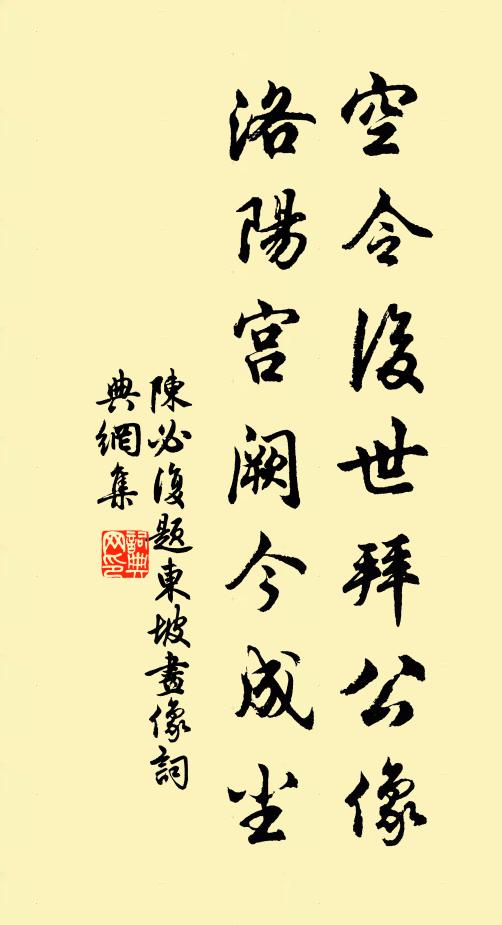 空令後世拜公像
洛陽宫闕今成尘
陳必復題東坡畫像詞
典網集
詞典
网印